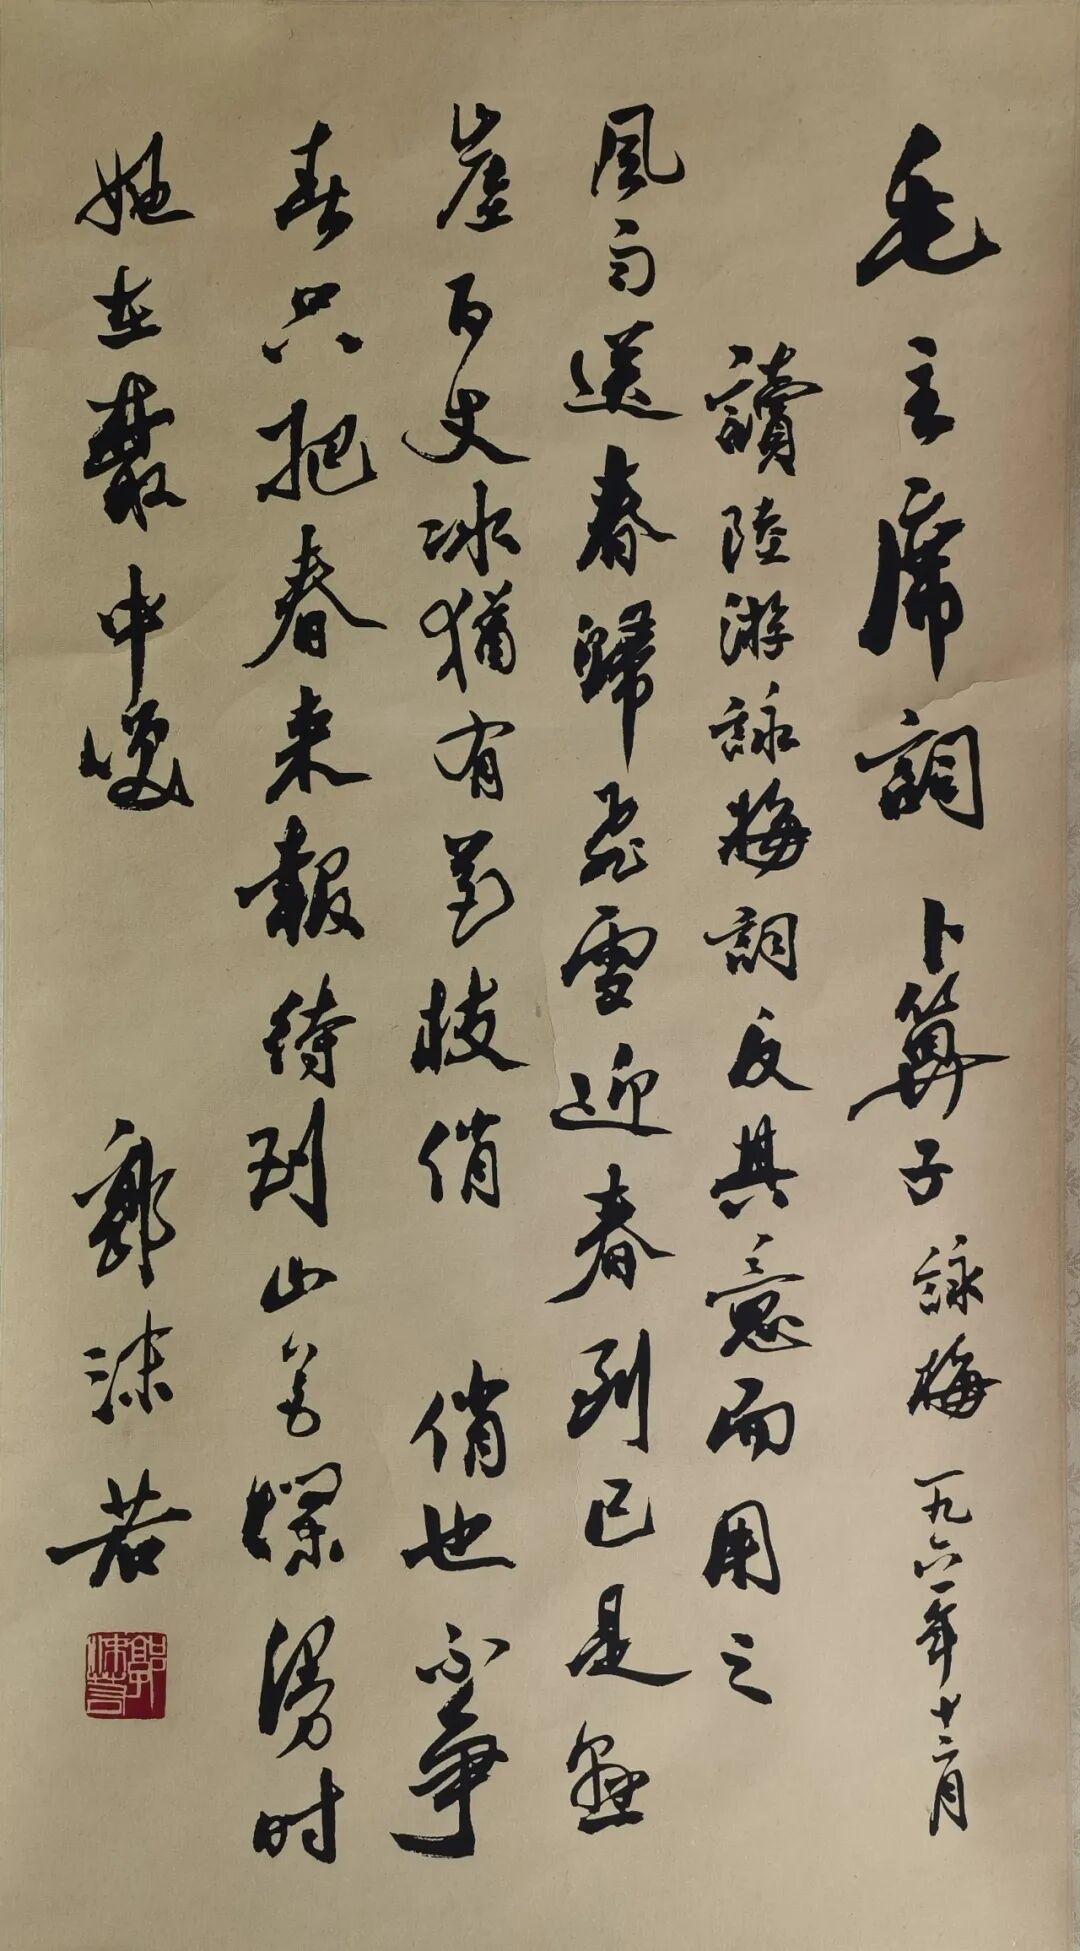 毛主席詞 卜算子 詠梅 一九六一年十二月
讀陸游詠梅詞反其意而用之
風雨送春歸飛雪迎春到已是懸
崖百丈冰猶有花枝俏 俏也不争
春只把春来報待到山花爛漫时
她在叢中笑 郭沫若
郭沫若